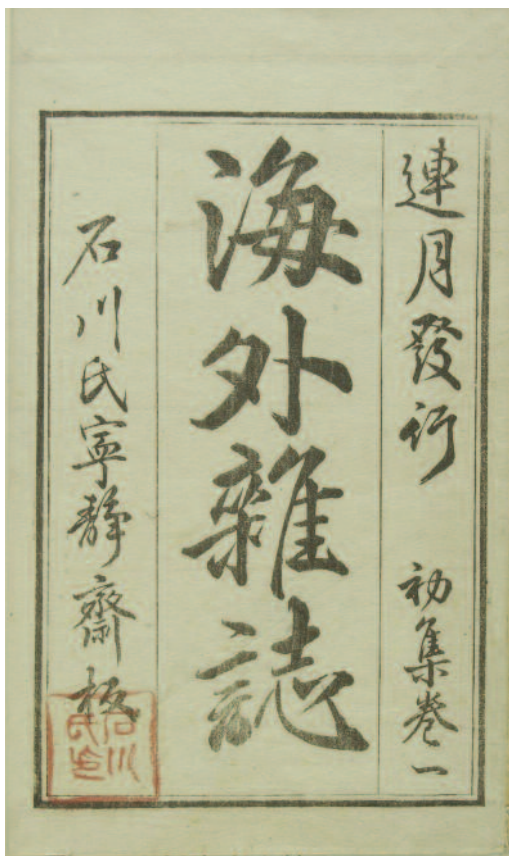 連月發行 初集卷一
海外雜誌
石川氏寧靜齋板
石川
氏包